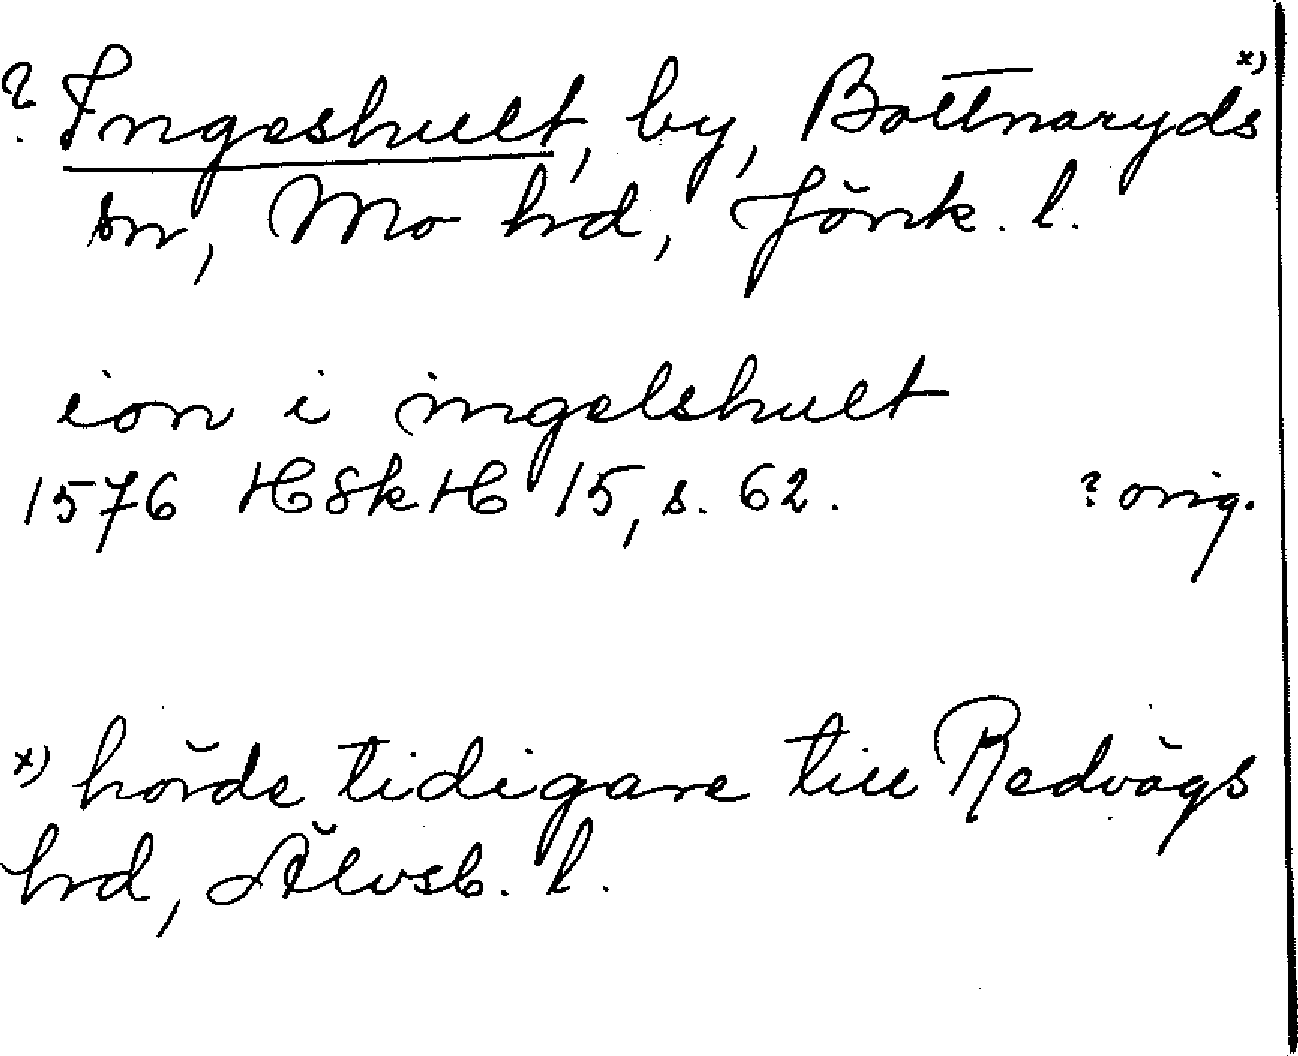 ? Ingeshult, by, Bottnaryds x)
sn, Mo hd, Jönk. l.
ion i ingelshult
1576 HSkH 15, s. 62. ? orig.
x) hörde tidigare till Redvägs
hd, Älvsb. l.